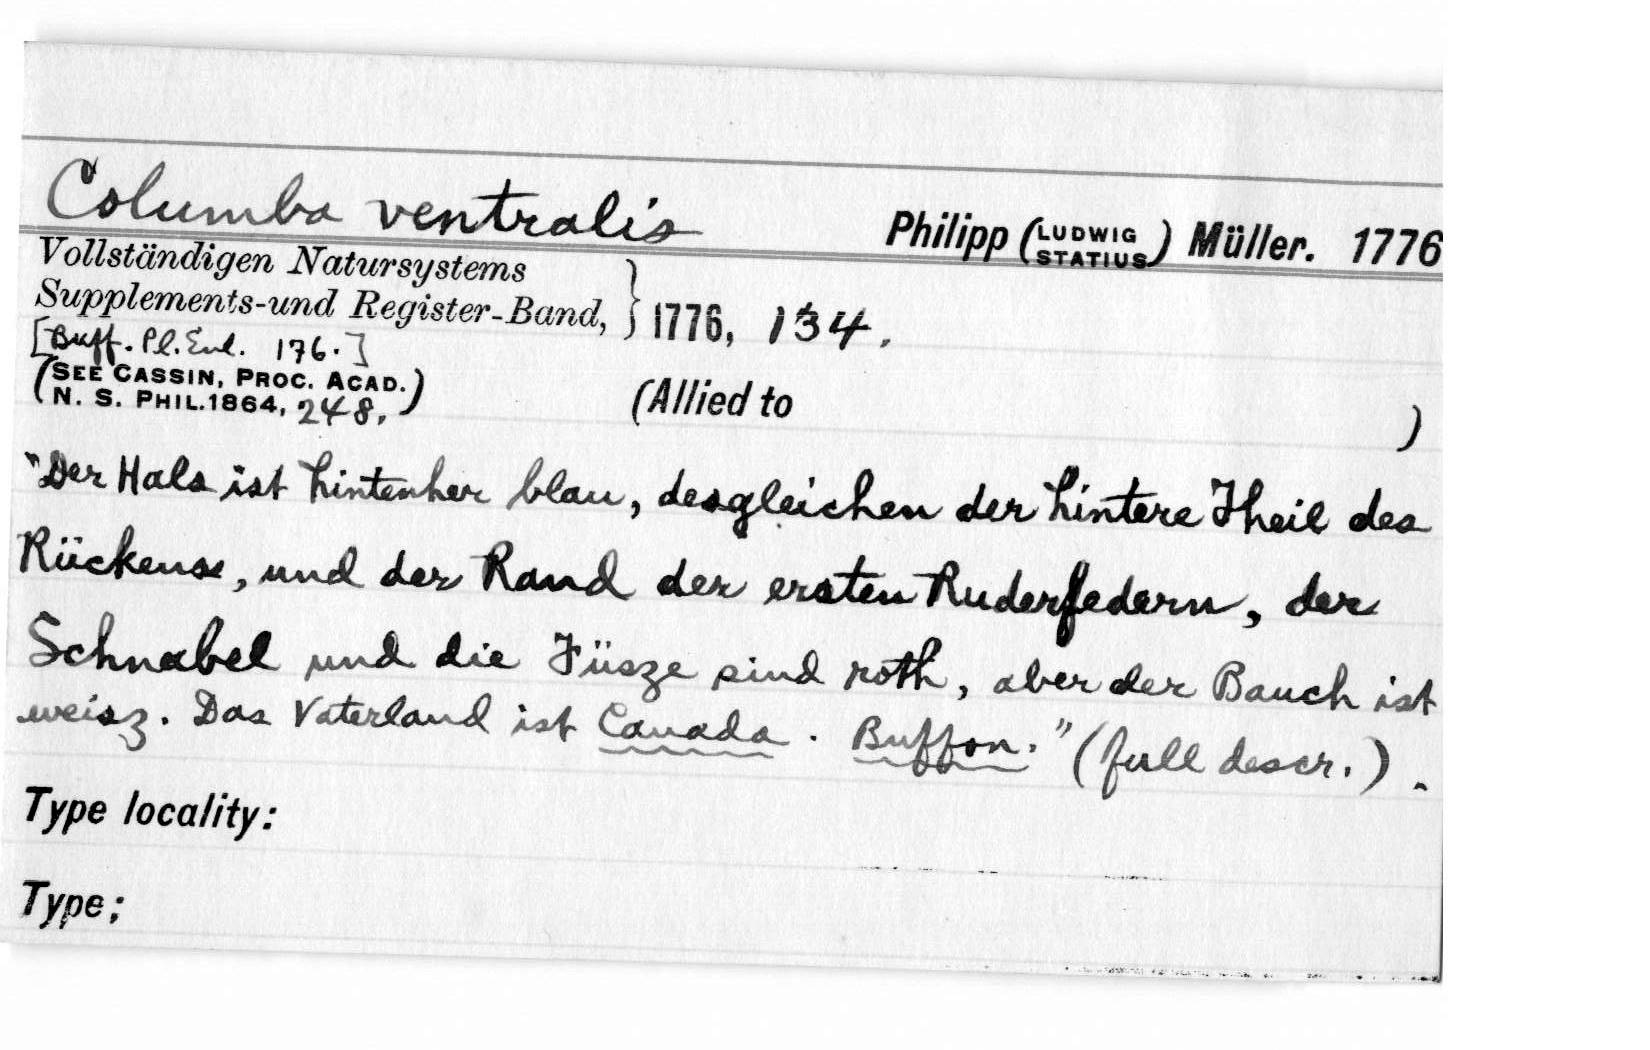 Columba ventralis
Philipp (LUDWIG STATIUS) Müller. 1776
Vollständigen Natursystems
Supplements-und Register-Band, } 1776, 134.
[Buff. Pl. Enl. 176.]
(SEE CASSIN, PROC. ACAD.
N. S. PHIL. 1864, 248.)
(Allied to )
"Der Hals ist hintenher blau, desgleichen der hintere Theil des
Rückens, und der Rand der ersten Ruderfedern, der
Schnabel und die Füsze sind roth, aber der Bauch ist
weisz. Das Vaterland ist Canada. Buffon." (full descr.).
Type locality:
Type;